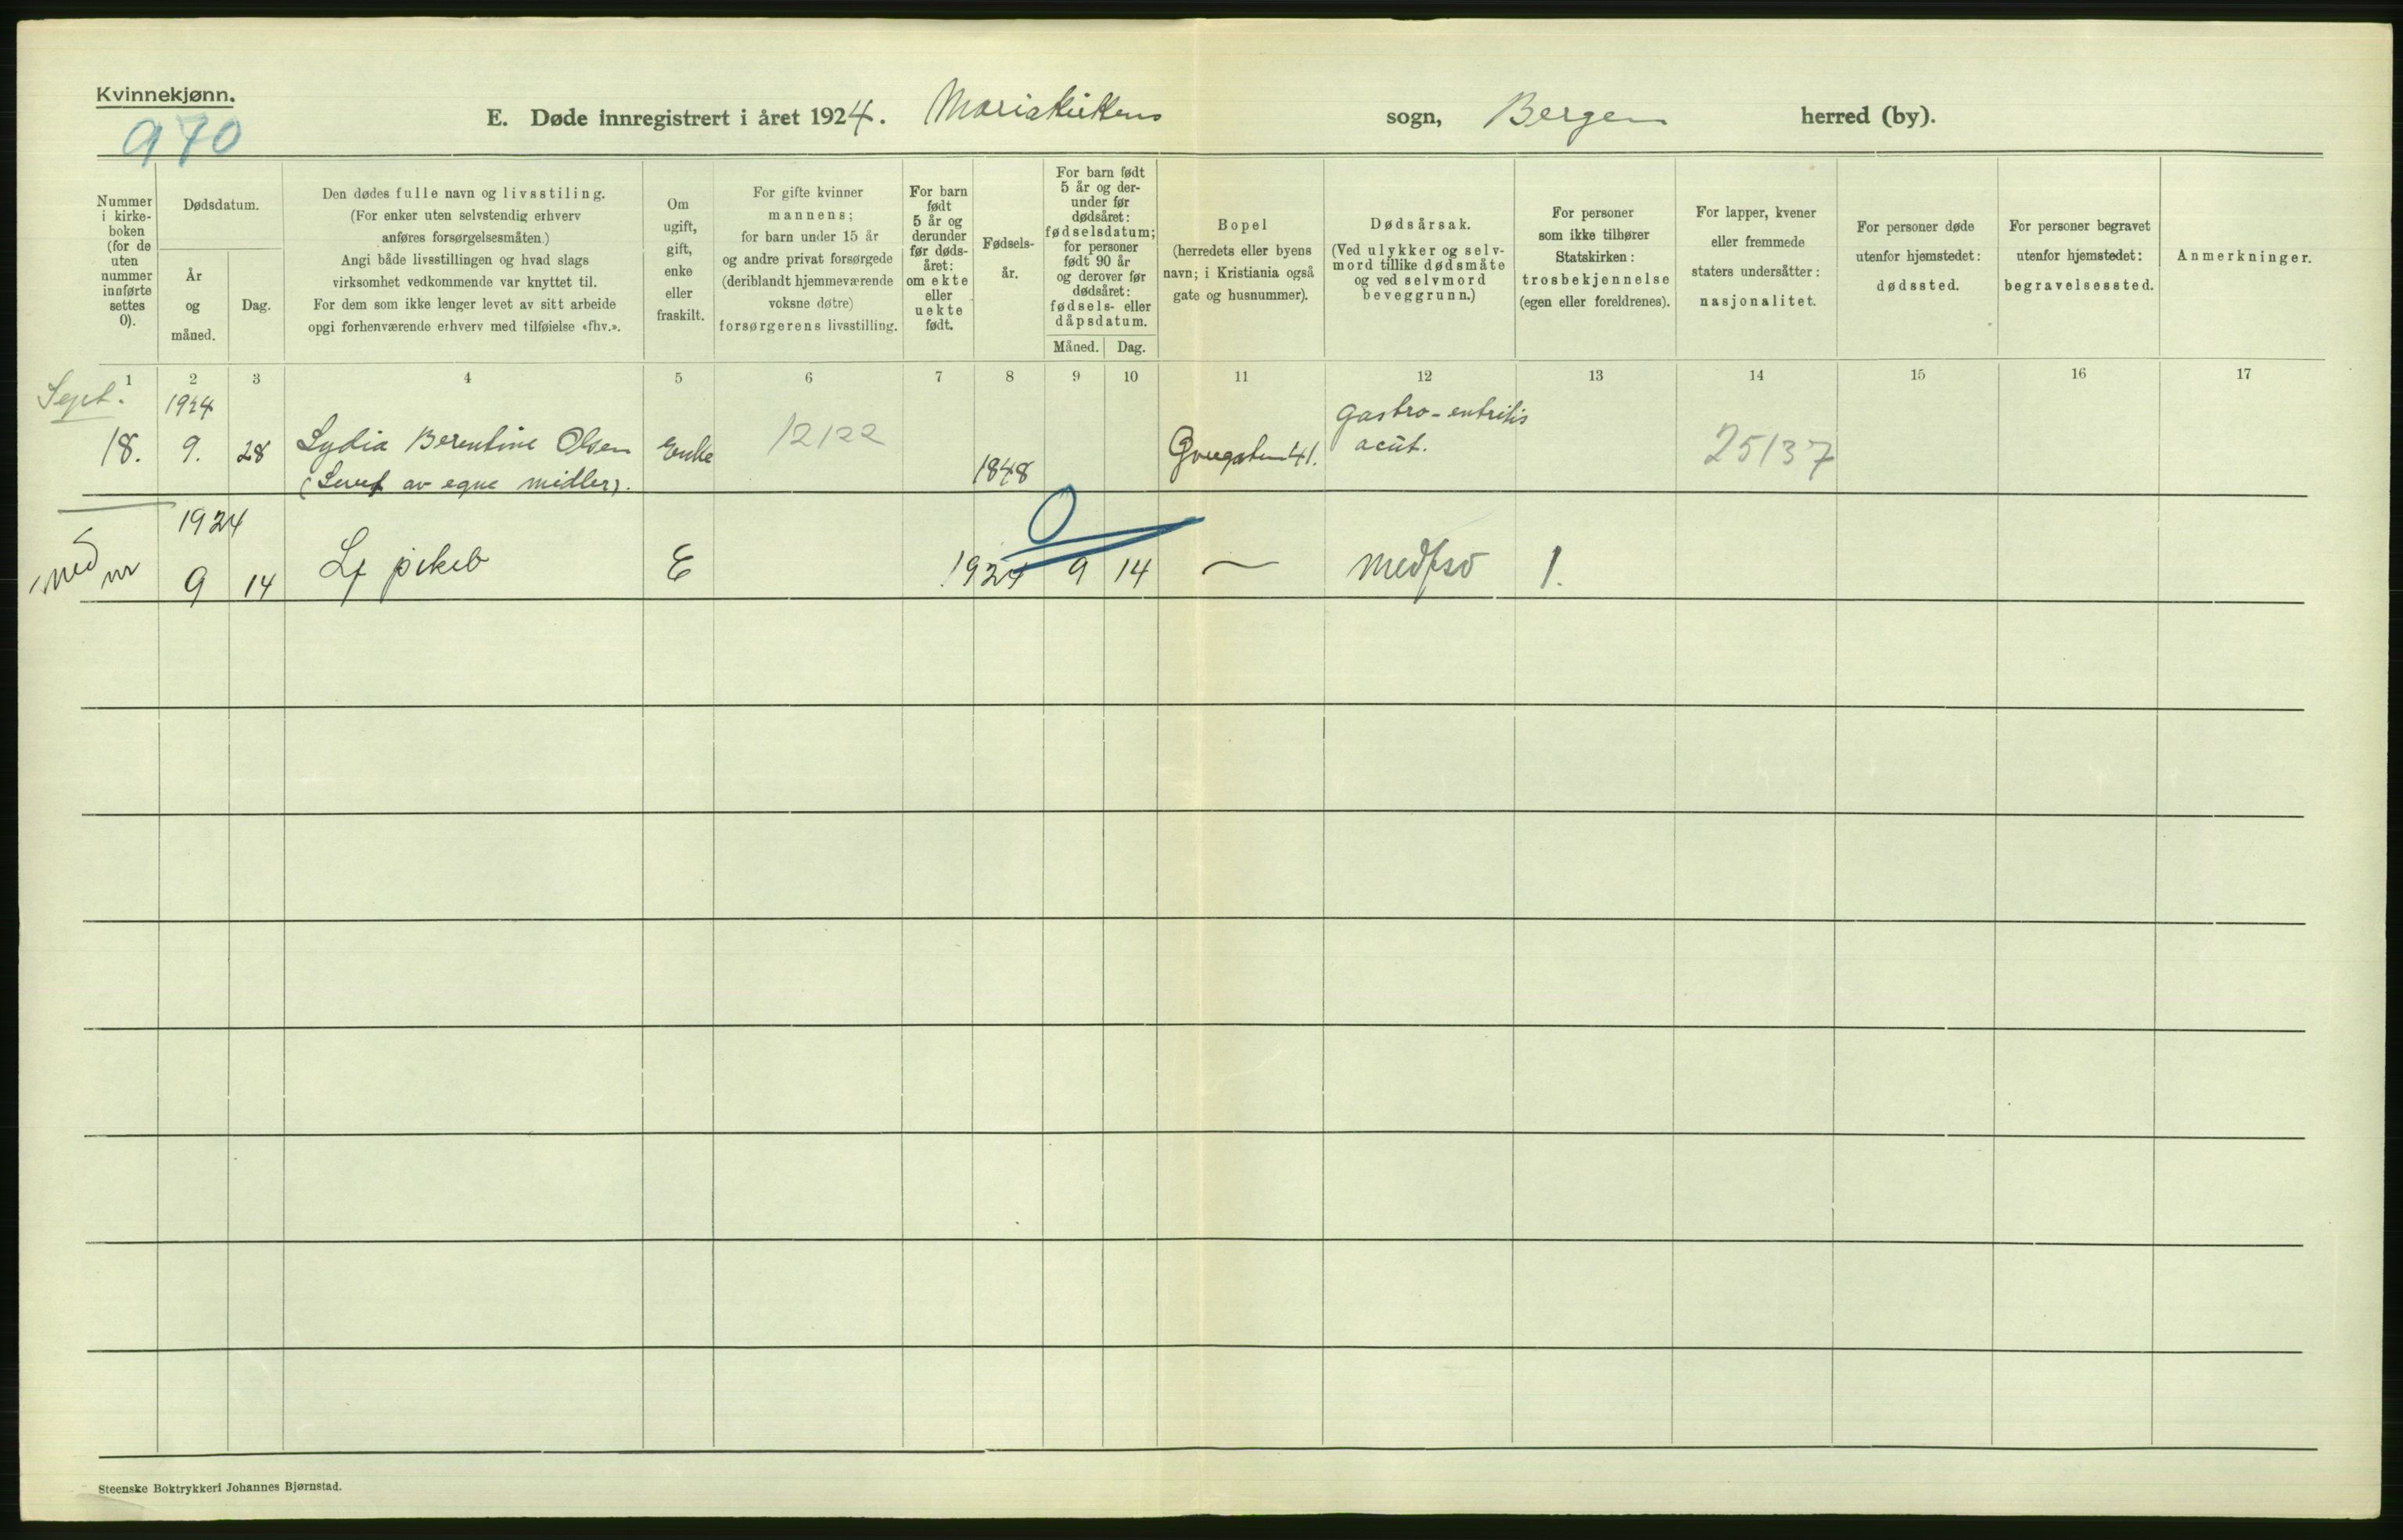 Kvinnekjønn.
970
E. Døde innregistrert i året 1924. Mariakirkens sogn, Bergen herred (by).
Nummer
i kirke-
boken
(for de
uten
nummer
innførte
settes
0).
Dødsdatum.
År
og
måned.
Dag.
Den dødes fulle navn og livsstiling.
(For enker uten selvstendig erhverv
anføres forsørgelsesmåten.)
Angi både livsstillingen og hvad slags
virksomhet vedkommende var knyttet til.
For dem som ikke lenger levet av sitt arbeide
opgi forhenværende erhverv med tilføielse «fhv.».
Om
ugift,
gift,
enke
eller
fraskilt.
For gifte kvinner
mannens;
for barn under 15 år
og andre privat forsørgede
(deriblandt hjemmeværende
voksne døtre)
forsørgerens livsstilling.
For barn
født
5 år og
derunder
før døds-
året:
om ekte
eller
uekte
født.
Fødsels-
år.
For barn født
5 år og der-
under før
dødsåret:
fødselsdatum;
for personer
født 90 år
og derover før
dødsåret:
fødsels- eller
dåpsdatum.
Måned. Dag.
Bopel
(herredets eller byens
navn; i Kristiania også
gate og husnummer).
Dødsårsak.
(Ved ulykker og selv-
mord tillike dødsmåte
og ved selvmord
beveggrunn.)
For personer
som ikke tilhører
Statskirken:
trosbekjennelse
(egen eller foreldrenes).
For lapper, kvener
eller fremmede
staters undersåtter:
nasjonalitet.
For personer døde
utenfor hjemstedet:
dødssted.
For personer begravet
utenfor hjemstedet:
begravelsessted.
Anmerkninger.
1 2 3 4 5 6 7 8 9 10 11 12 13 14 15 16 17
Sept.
1924
gastro-entritis
18. 9. 28 Lydia Berentine Olsen Enke 12122 1848 41. acut. 25137
av egne midler).
1924
0
9 14 pikeb E 1924 9 14 — 1.
nr
Steenske Boktrykkeri Johannes Bjørnstad.